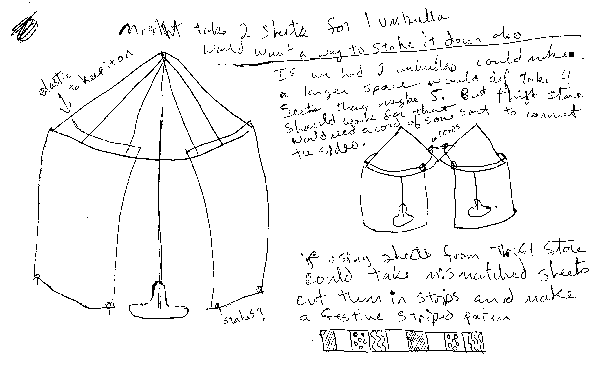 Might take 2 sheets for 1 umbrella
would want a way to stake it down also
elastic
If we had 2 umbrellas could make
a larger space would def take 4
sheets they maybe 5. But thrift store
should work for that
would need a cord of some sort to connect
the sides.
cords
stakes?
if using sheets from thrift store
could take mismatched sheets
cut them in strips and make
a festive striped pattern